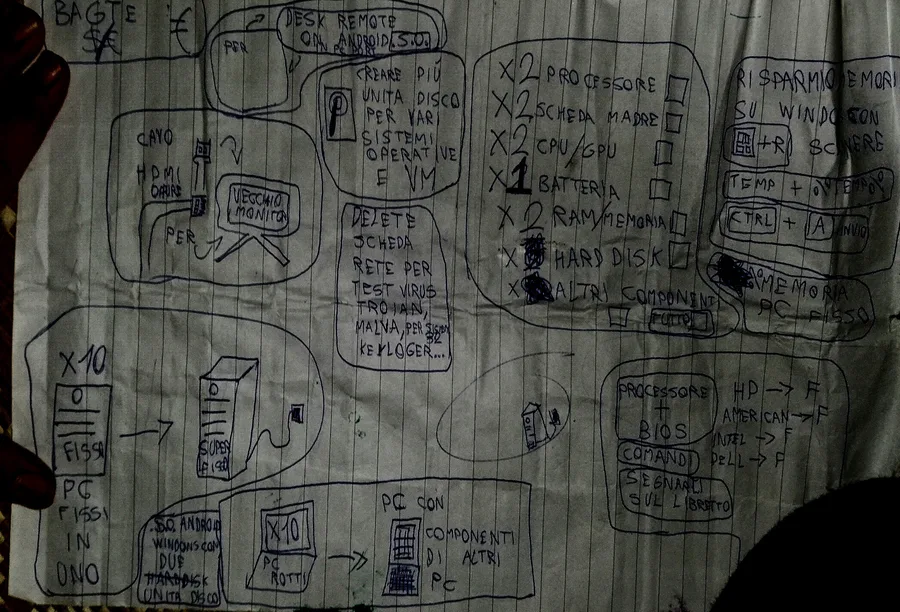 BAGTE
€
PER
DESK REMOTE
ON ANDROID S.O.
CAVO
HDMI
OPPURE
PER
VECCHIO
MONITOR
P
CREARE PIÚ
UNITA DISCO
PER VARI
SISTEMI
OPERATIVE
E VM
DELETE
SCHEDA
RETE PER
TEST VIRUS
TROJAN,
MALVA, PER
KEYLOGER...
X2 PROCESSORE
X2 SCHEDA MADRE
X2 CPU/GPU
X1 BATTERIA
X2 RAM/MEMORIA
X HARD DISK
X ALTRI COMPONENTI
TUTTO
RISPARMIO MEMORI
SU WINDO CON
+R
TEMP + %TEMP%
CTRL + A INVIO
MEMORIA
PC FISSO
X10
FISSI
PC
FISSI
IN
UNO
SUPER
FISSO
S.O. ANDROID
WINDOWS CON
DUE
HARD DISK
UNITA DISCO
X10
PC
ROTTI
PC CON
COMPONENTI
DI ALTRI
PC
PROCESSORE
+
BIOS
COMANDI
SEGNARLI
SUL LIBRETTO
HP -> F
AMERICAN -> F
INTEL -> F
DELL -> F